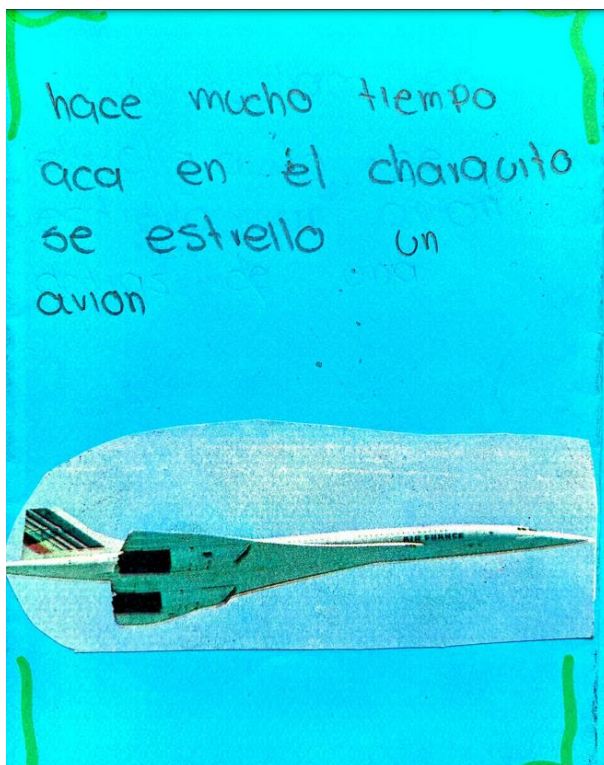 hace mucho tiempo
aca en el charquito
se estrello un
avion
AIR FRANCE